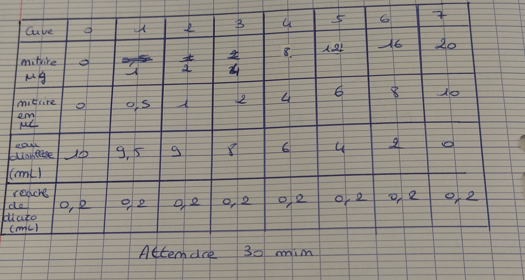 Cuve 0 1 2 3 4 5 6 7
nitrite µg 0 1 2 4 8 12 16 20
nitrite en mL 0 0,5 1 2 4 6 8 10
eau distillée (mL) 10 9,5 9 8 6 4 2 0
réactif de diazo (mL) 0,2 0,2 0,2 0,2 0,2 0,2 0,2 0,2
Attendre 30 min